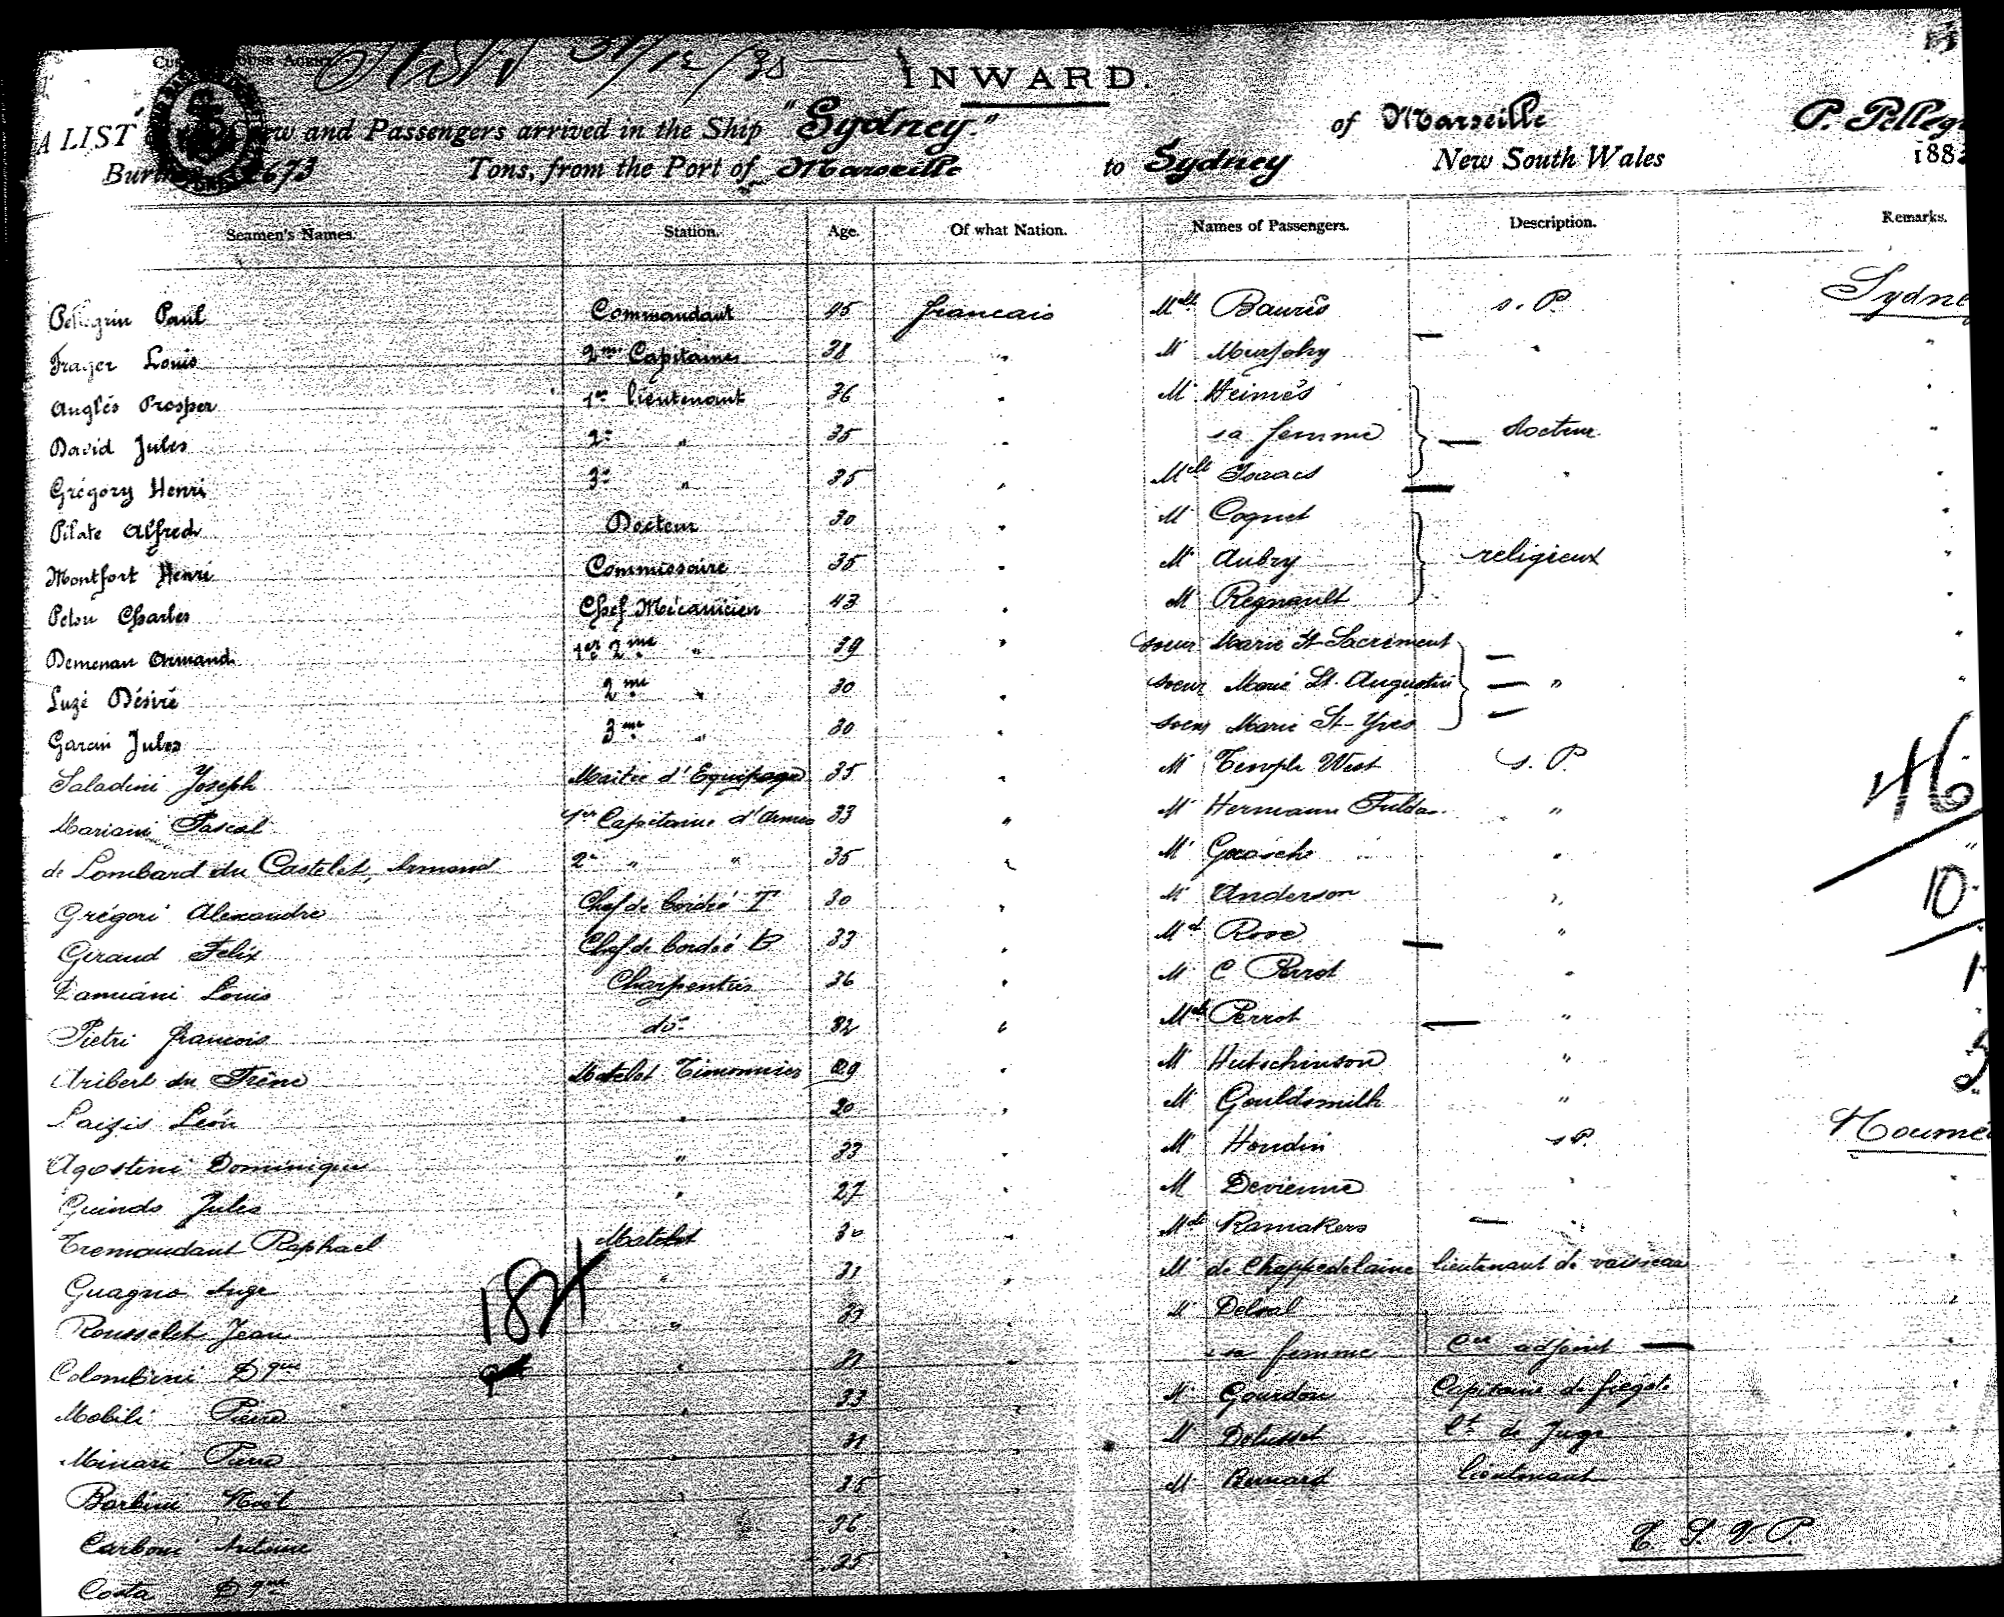 CUS HOUSE AGENT 31/12/83
INWARD.
A LIST ew and Passengers arrived in the Ship "Sydney." of Marseille P. Pelleg
Burt 673 Tons, from the Port of Marseille to Sydney New South Wales 188
Seamen's Names. Station. Age. Of what Nation. Names of Passengers. Description. Remarks.
Pellegrin Paul Commandant 45 francais Mlle Baurès s. P. Sydne
Frager Louis 2me Capitaine 38 " M Murphy "
Anglès Prosper 1er lieutenant 36 " M Heimès "
David Jules 2e " 35 " sa femme docteur "
Grégory Henri 3e " 35 " Mlle "
Pilate Alfred Docteur 30 " M Cognet "
Montfort Henri Commissaire 35 " M Aubry religieux "
Petou Charles Chef Mécanicien 43 " M Regnault "
Demenau Armand 1er 2me " 39 " soeur Marie St Sacrement "
Luzé Désiré 2me " 30 " soeur Marie St. Augustin " "
Garcin Jules 3me " 30 " soeur Marie St-Yves
Saladini Joseph Maitre d'Equipage 35 " M Temple West s. P.
Mariani Pascal 1er Capitaine d'Armes 33 " M Hermann Fulda " 46
de Lombard du Castelet, Armand 2e " " 35 " M "
Grégori Alexandre Chef de bordée T 30 " M Anderson " 10
Geraud Felix Chef de bordée B 33 " Md Rose "
Damiani Louis Charpentier 36 " M C Perrot " 1
Pietri francois do 32 " Mde Perrot "
Aribert du Frêne Matelot Timonnier 29 " M Hutschinson "
Léon " 20 " M Gouldsmith "
Agostini Dominique " 33 " M Houdin s P. Noumé
Guindo Jules " 27 " M Devienne "
Tremaudant Raphael Matelot 30 " Mde Ramakers "
Guagno Ange " 31 " M de Chappedelaine lieutenant de vaisseau "
Rousselet Jean " " M Delval "
184
Colombini Dque " " sa femme adjoint "
Mobili Pierre " 33 " M Gourdon Capitaine de frégate "
Minari Pierre " " M Lt de Juge "
Barbini Noël " 35 " M Bernard lieutenant
Carboni Antoine " 36 "
Costa Dque " 25 "
T. S. V. P.